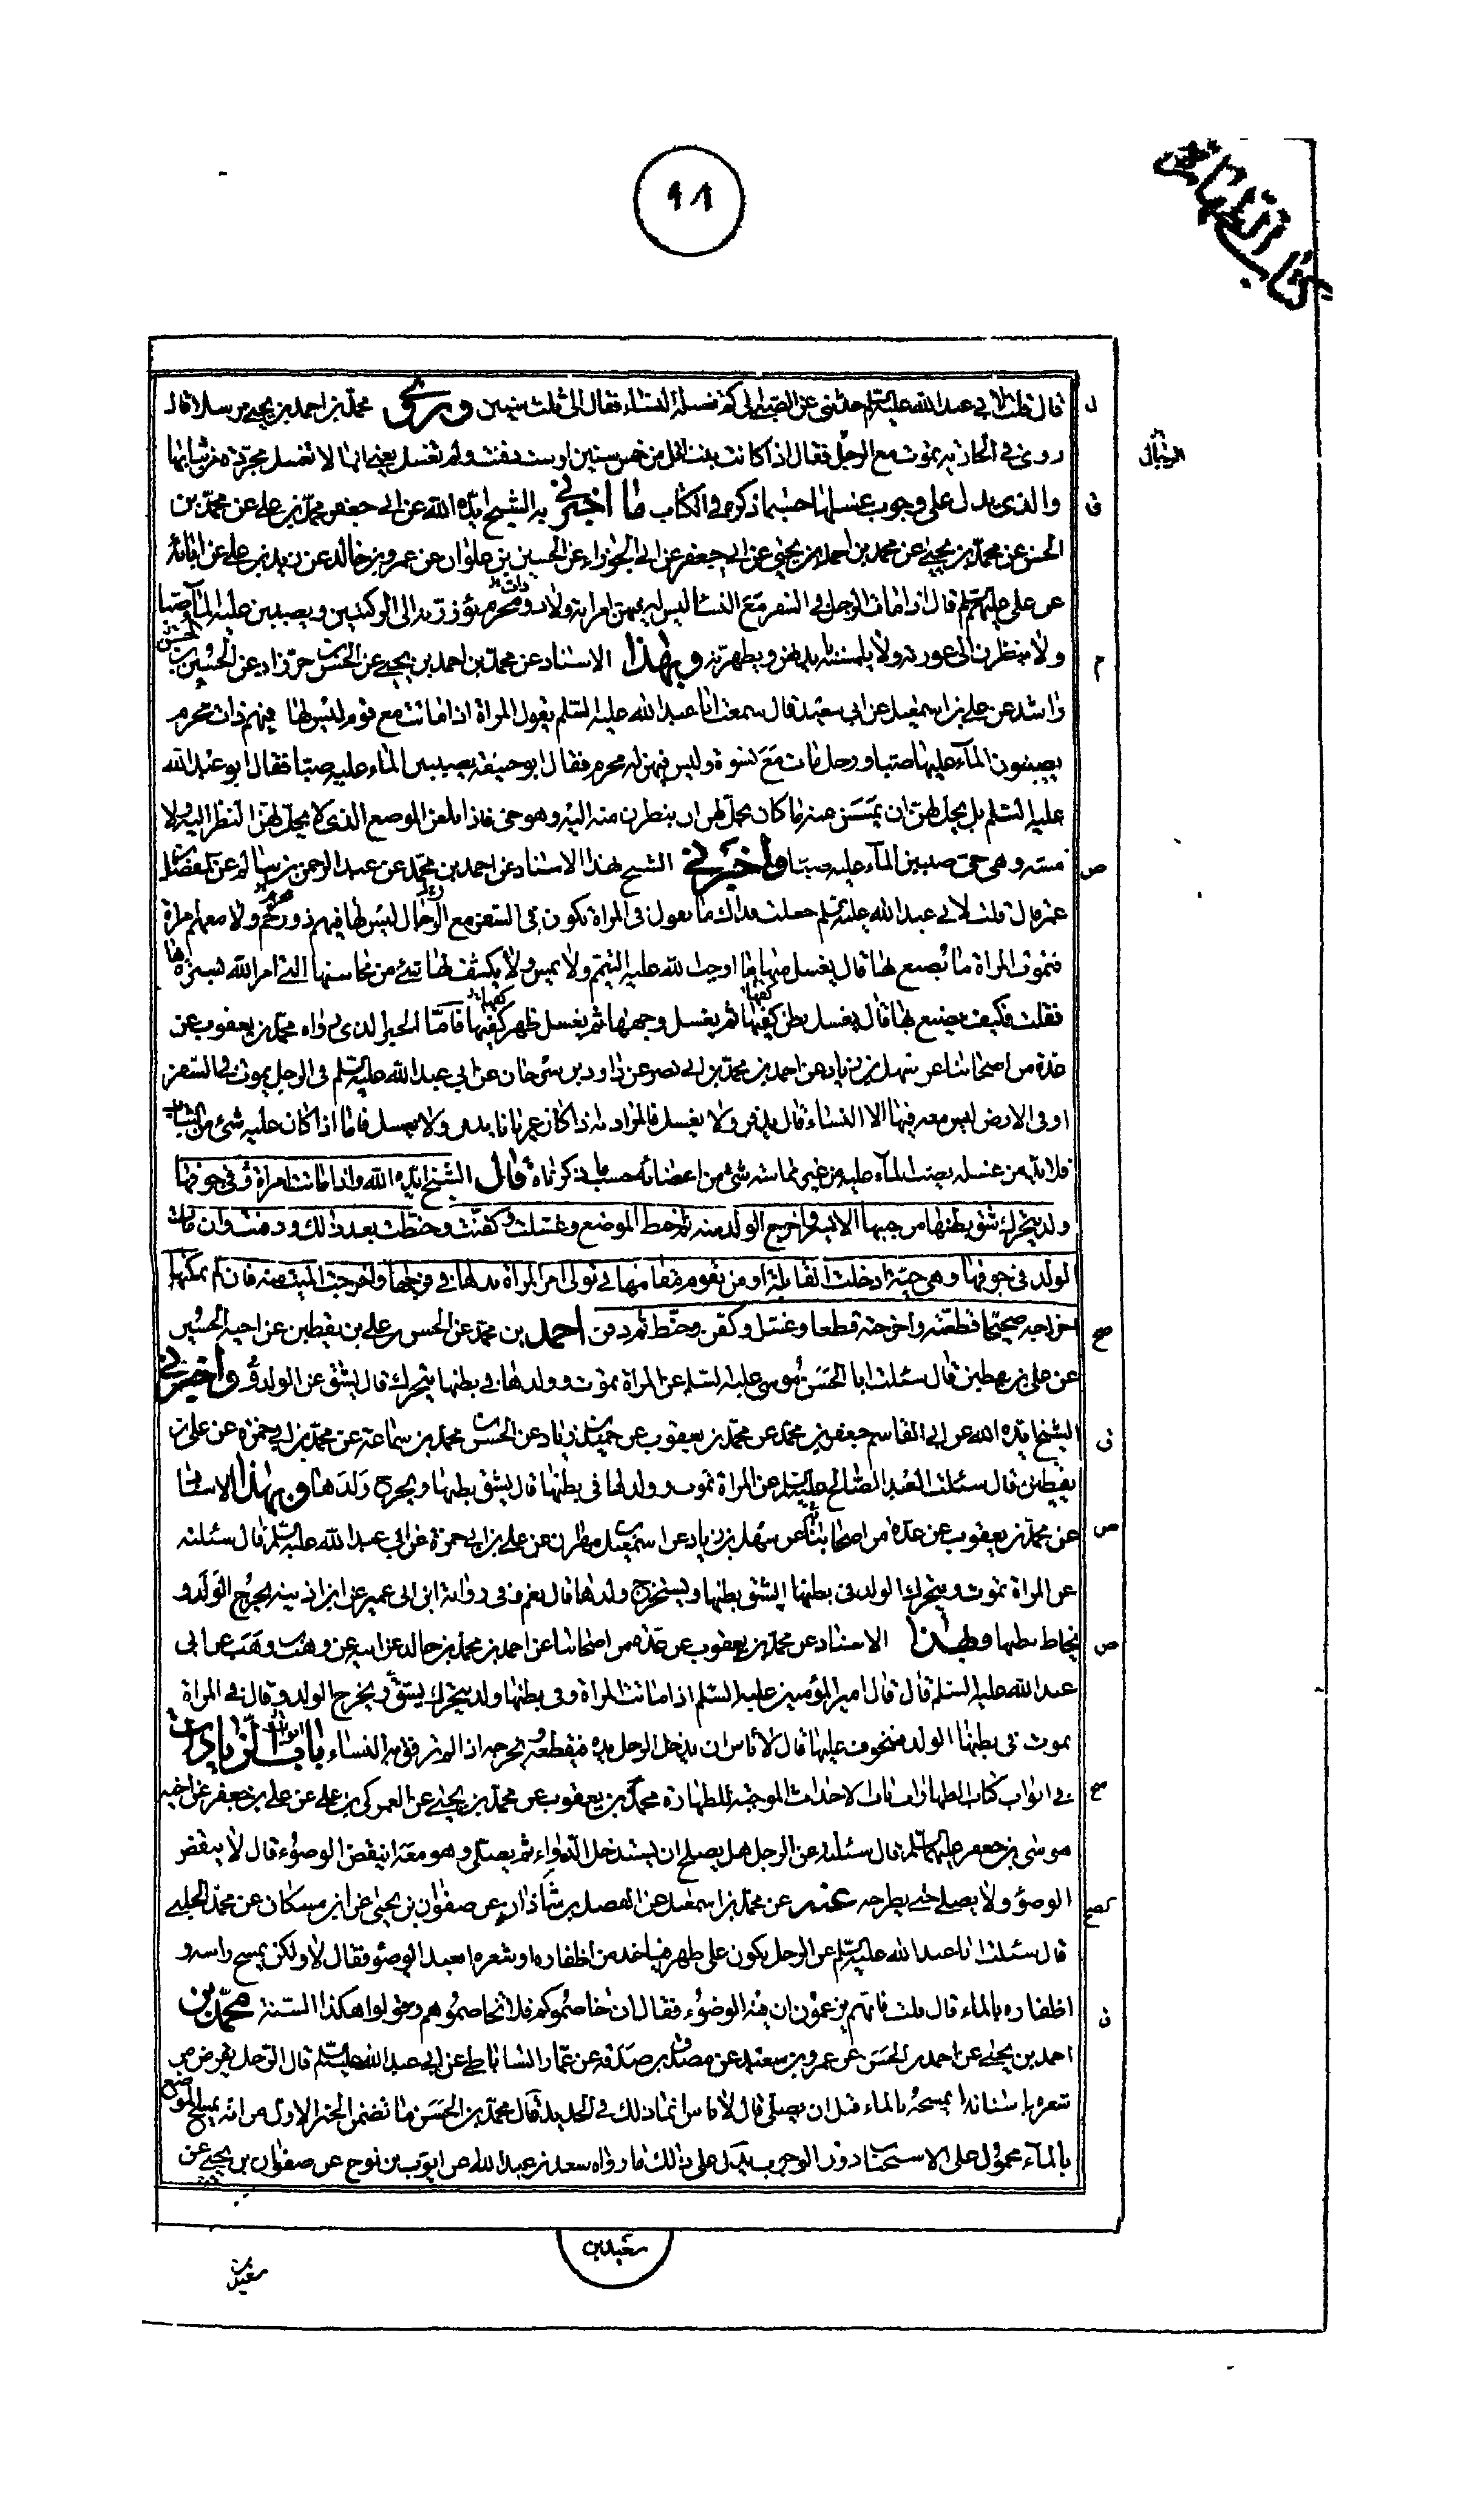 كتاب الطهارة
٩٨
قال قلت لابي عبد الله عليه السلم حدثنى عن الصبي الى كم تغسله النساء فقال الى ثلث سنين وروى محمد بن احمد بن يحيى مرسلا قال
روى في الجارية تموت مع الرجل فقال اذا كانت بنت اقل من خمس سنين او ست دفنت ولم تغسل يعنى انها لا تغسل مجردة من ثيابها
والذي يدل على وجوب غسلها حسبما ذكره في الكتاب ما اخبرني به الشيخ ايده الله عن ابي جعفر محمد بن علي عن محمد بن
الحسن عن محمد بن يحيى عن محمد بن احمد بن يحيى عن ابي جعفر عن ابي الجوزاء عن الحسين بن علوان عن عمرو بن خالد عن زيد بن علي عن ابائه
عن علي عليهم السلم قال اذا مات الرجل في السفر مع النساء ليس له فيهن امراته ولا ذو محرم يؤزرنه الى الركبتين ويصببن عليه الماء صبا
ولا ينظرن الى عورته ولا يلمسنه بايديهن ويطهرنه وبهذا الاسناد عن محمد بن احمد بن يحيى عن الحسن بن خرزاد عن الحسين بن
راشد عن علي بن اسمعيل عن ابي سعيد قال سمعت ابا عبد الله عليه السلم يقول المراة اذا ماتت مع قوم ليس لها فيهم ذات محرم
يصبون الماء عليها صبا ورجل مات مع نسوة وليس فيهن له محرم فقال ابو حنيفة يصببن الماء عليه صبا فقال ابو عبد الله
عليه السلم بل يحل لهن ان يمسسن منه ما كان يحل لهن ان ينظرن منه اليه وهو حي فاذا بلغن الموضع الذي لا يحل لهن النظر اليه ولا
مسه وهي حي صببن الماء عليه صبا واخبرني الشيخ بهذا الاسناد عن احمد بن محمد عن عبد الرحمن بن سالم عن المفضل بن
عمر قال قلت لابي عبد الله عليه السلم جعلت فداك ما تقول في المراة تكون في السفر مع الرجال ليس لها فيهم ذو محرم ولا معهم امراة
فتموت المراة ما يصنع بها قال يغسل منها ما اوجب الله عليه التيمم ولا يمس ولا يكشف لها شئ من محاسنها التي امر الله بسترها
فقلت فكيف يصنع بها قال يغسل بطن كفيها ثم يغسل وجهها ثم يغسل ظهر كفيها فاما الخبر الذي رواه محمد بن يعقوب عن
عدة من اصحابنا عن سهل بن زياد عن احمد بن محمد بن ابي نصر عن داود بن سرحان عن ابي عبد الله عليه السلم في الرجل يموت في السفر
او في الارض ليس معه فيها الا النساء قال يدفن ولا يغسل فالمراد به اذا كان عريانا يدفن ولا يغسل فاما اذا كان عليه شئ من الثياب
فلا بد من غسله بصب الماء عليه من غير مماسة شئ من اعضائه حسب ما ذكرناه قال الشيخ ايده الله واذا ماتت امراة وفي جوفها
ولد يتحرك شق بطنها من جنبها الايسر واخرج الولد منه ثم خيط الموضع وغسلت وكفنت وحنطت بعد ذلك ودفنت وان مات
الولد في جوفها وهي حية ادخلت القابلة او من يقوم مقامها في تولى امر المراة يدها في فرجها واخرجت الميت منه فان لم يمكنها
اخراجه صحيحا قطعته واخرجته قطعا وغسل وكفن وحنط ثم دفن احمد بن محمد عن الحسن بن علي بن يقطين عن اخيه الحسين
عن علي بن يقطين قال سئلت ابا الحسن موسى عليه السلم عن المراة تموت وولدها في بطنها يتحرك قال يشق عن الولد واخبرني
الشيخ ايده الله عن ابي القاسم جعفر بن محمد عن محمد بن يعقوب عن حميد بن زياد عن الحسن بن محمد بن سماعة عن محمد بن ابي حمزة عن علي بن
يقطين قال سئلت العبد الصالح عليه السلم عن المراة تموت وولدها في بطنها قال يشق بطنها ويخرج ولدها وبهذا الاسناد
عن محمد بن يعقوب عن عدة من اصحابنا عن سهل بن زياد عن اسمعيل بن مهران عن علي بن ابي حمزة عن ابي عبد الله عليه السلم قال سئلته
عن المراة تموت ويتحرك الولد في بطنها ايشق بطنها ويستخرج ولدها قال نعم وفي رواية ابن ابي عمير عن ابن اذينه يخرج الولد و
يخاط بطنها وبهذا الاسناد عن محمد بن يعقوب عن عدة من اصحابنا عن احمد بن محمد بن خالد عن ابيه عن وهب بن وهب عن ابي
عبد الله عليه السلم قال قال امير المؤمنين عليه السلم اذا ماتت المراة وفي بطنها ولد يتحرك يشق ويخرج الولد وقال في المراة
يموت في بطنها الولد فيتخوف عليها قال لا باس ان يدخل الرجل يده فيقطعه ويخرجه اذا لم ترفق به النساء باب الزيادات
في ابواب كتاب الطهارة باب الاحداث الموجبة للطهارة محمد بن يعقوب عن محمد بن يحيى عن العمركي بن علي عن علي بن جعفر عن اخيه
موسى بن جعفر عليهما السلم قال سئلته عن الرجل هل يصلح ان يستدخل الدواء ثم يصلي وهو معه اينقض الوضوء قال لا ينقض
الوضوء ولا يصلي حتى يطرحه عنه عن محمد بن اسمعيل عن الفضل بن شاذان عن صفوان بن يحيى عن ابن مسكان عن محمد الحلبي
قال سئلت ابا عبد الله عليه السلم عن الرجل يكون على طهر فياخذ من اظفاره او شعره ايعيد الوضوء فقال لا ولكن يمسح راسه و
اظفاره بالماء قال قلت فانهم يزعمون ان فيه الوضوء فقال ان خاصموكم فلا تخاصموهم وقولوا هكذا السنة محمد بن
احمد بن يحيى عن احمد بن الحسن عن عمرو بن سعيد عن مصدق بن صدقه عن عمار الساباطي عن ابي عبد الله عليه السلم قال الرجل يقرض من
شعره باسنانه ايمسحه بالماء قبل ان يصلي قال لا باس انما ذلك في الحديد قال محمد بن الحسن ما تضمن الخبر الاول من انه يمسح الموضع
بالماء محمول على الاستحباب دون الوجوب يدل على ذلك ما رواه سعد بن عبد الله عن ايوب بن نوح عن صفوان بن يحيى عن
سعيد بن
سعيد بن